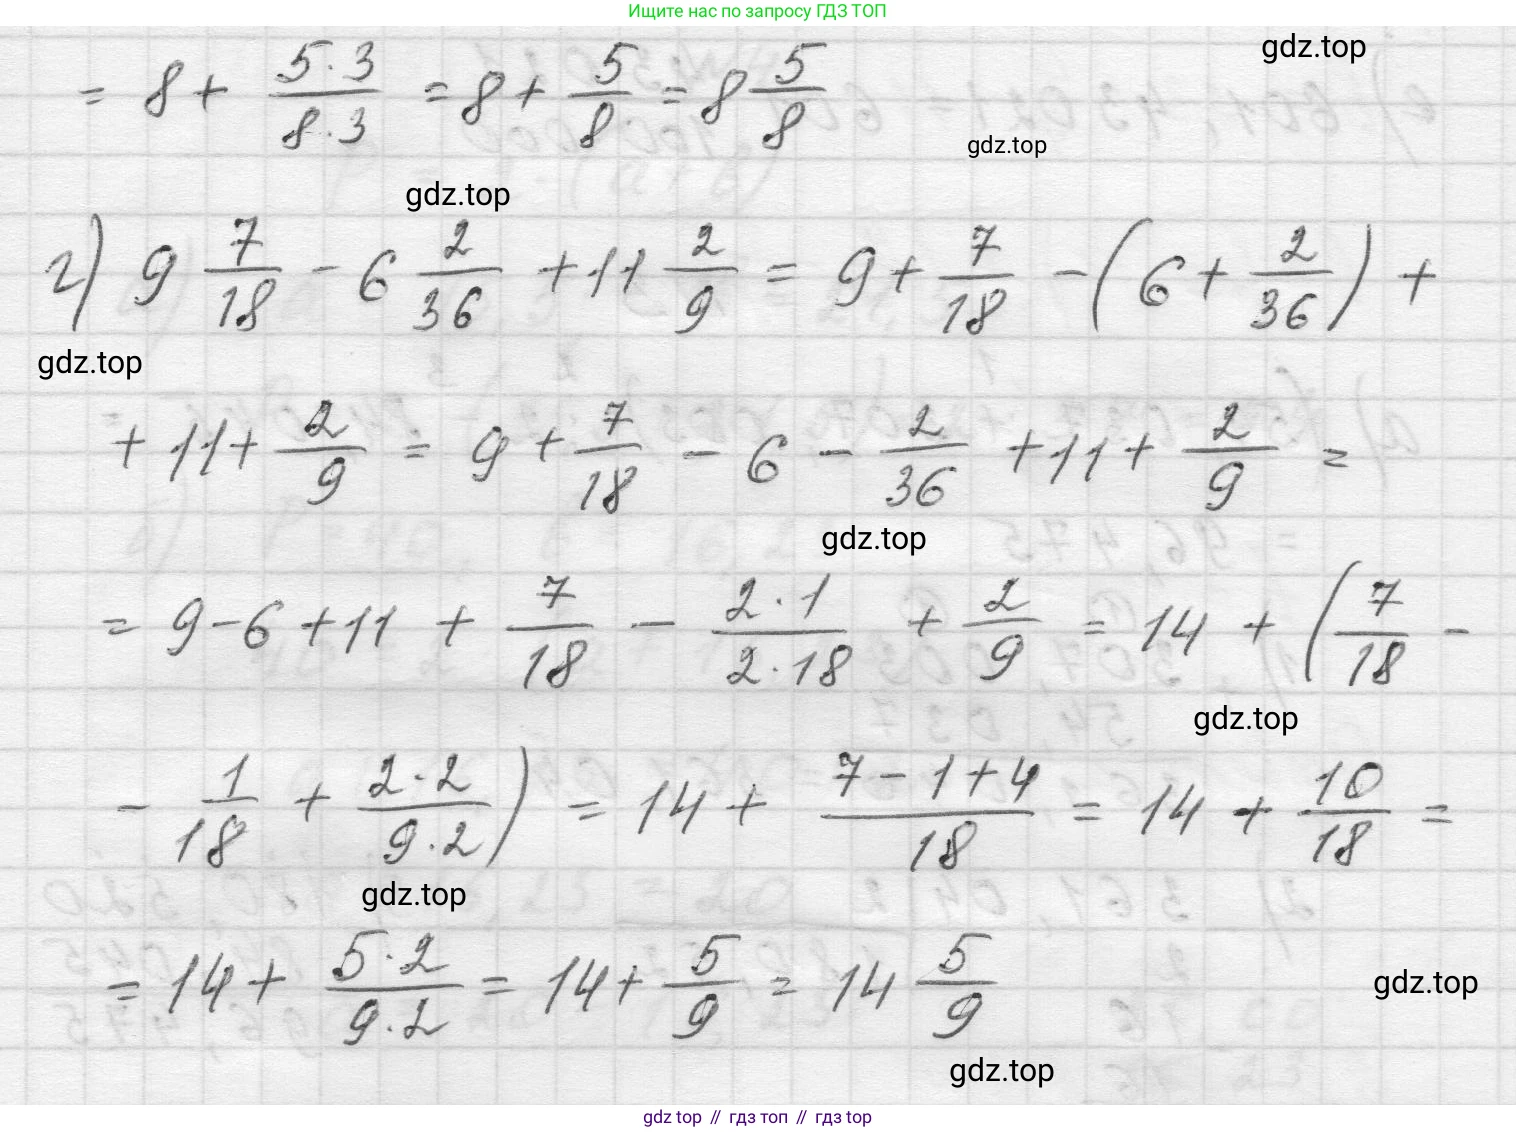 Ищите нас по запросу ГДЗ ТОП
gdz.top
= 8 + 5·3/8·3 = 8 + 5/8 = 8 5/8
gdz.top
gdz.top
г) 9 7/18 - 6 2/36 + 11 2/9 = 9 + 7/18 - (6 + 2/36) +
gdz.top
+ 11 + 2/9 = 9 + 7/18 - 6 - 2/36 + 11 + 2/9 =
gdz.top
= 9 - 6 + 11 + 7/18 - 2·1/2·18 + 2/9 = 14 + (7/18 -
gdz.top
- 1/18 + 2·2/9·2) = 14 + 7-1+4/18 = 14 + 10/18 =
gdz.top
= 14 + 5·2/9·2 = 14 + 5/9 = 14 5/9
gdz.top
gdz.top
gdz top // гдз топ // гдз top